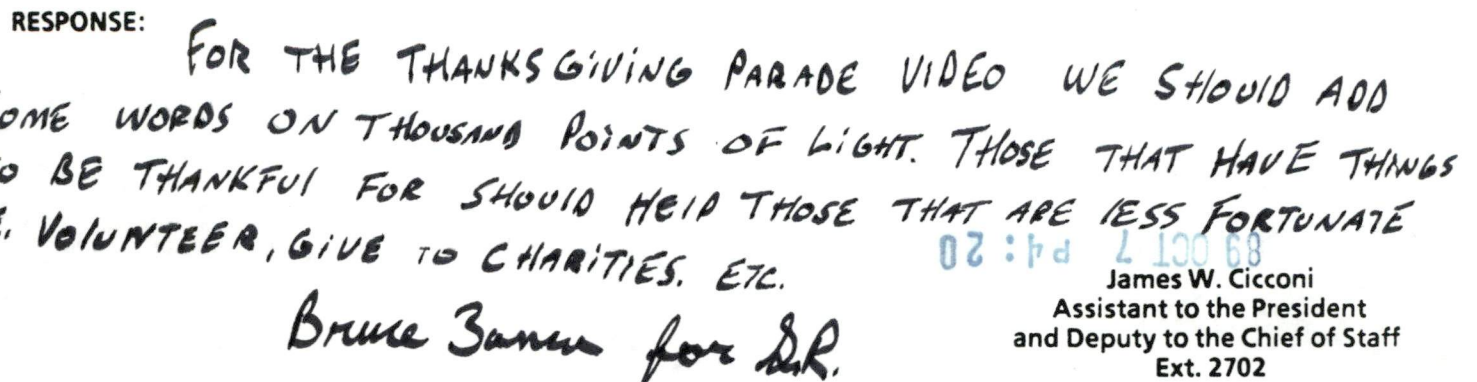 RESPONSE:
FOR THE THANKSGIVING PARADE VIDEO WE SHOULD ADD
OME WORDS ON THOUSAND POINTS OF LIGHT. THOSE THAT HAVE THINGS
O BE THANKFUL FOR SHOULD HELP THOSE THAT ARE LESS FORTUNATE
. VOLUNTEER, GIVE TO CHARITIES. ETC.
89 OCT 7 P4:20
Bruce for S.R.
James W. Cicconi
Assistant to the President
and Deputy to the Chief of Staff
Ext. 2702